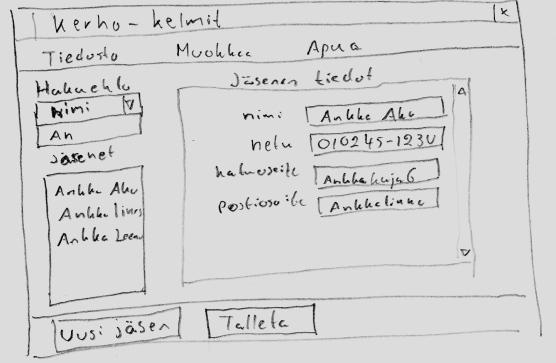 Kerho-kelmit
x
Tiedosto Muokkaa Apua
Hakuehto
Nimi
An
Jäsenet
Ankka Aku
Ankka Iines
Ankka Leena
Jäsenen tiedot
nimi Ankka Aku
hetu 010245-123U
katuosoite Ankkakuja 6
postiosoite Ankkalinna
Uusi jäsen Talleta